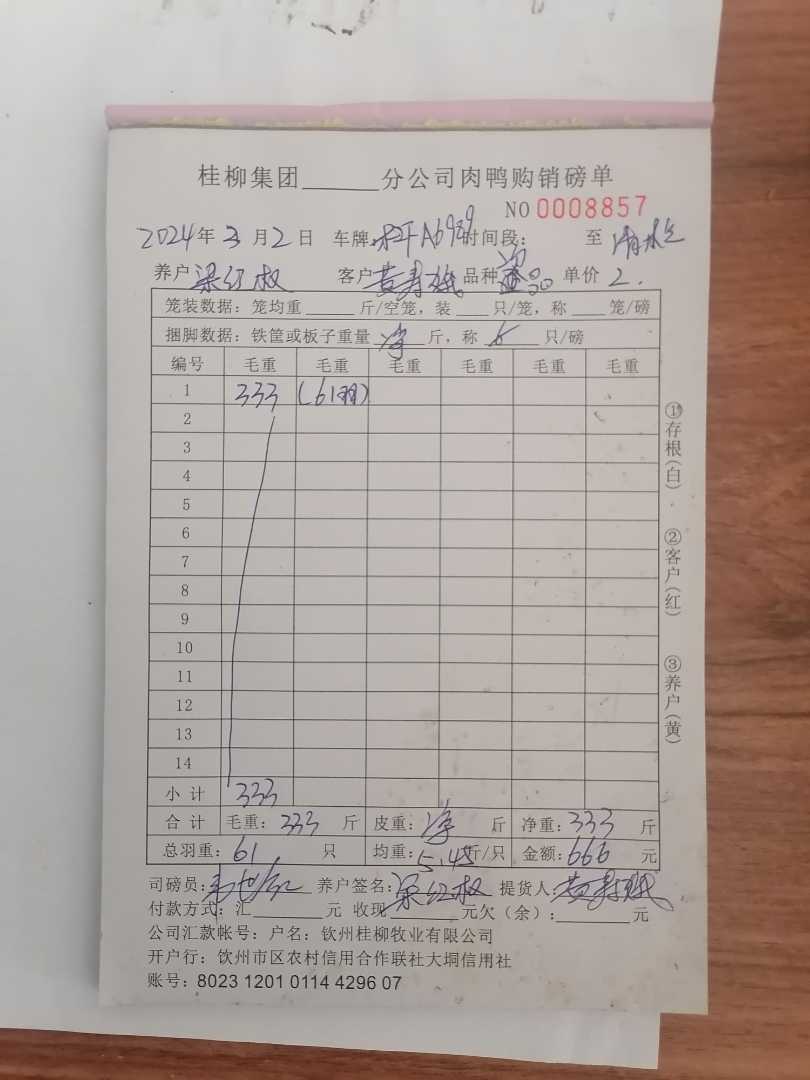 桂柳集团______分公司肉鸭购销磅单
NO 0008857
2024年3月2日 车牌: A6989 时间段: 至
养户 梁红权 客户 黄寿 品种 单价 2.
笼装数据: 笼均重______斤/空笼, 装___只/笼, 称___笼/磅
捆脚数据: 铁筐或板子重量 净 斤, 称 只/磅
编号 毛重 毛重 毛重 毛重 毛重 毛重
1 333 (61羽)
2
3
4
5
6
7
8
9
10
11
12
13
14
小计 333
合计 毛重: 333 斤 皮重: 净 斤 净重: 333 斤
总羽重: 61 只 均重: 5.45 斤/只 金额: 666 元
司磅员: 韦世 养户签名: 梁红权 提货人: 黄寿
付款方式: 汇______元 收现______元欠(余): ______元
公司汇款帐号: 户名: 钦州桂柳牧业有限公司
开户行: 钦州市区农村信用合作联社大垌信用社
账号: 8023 1201 0114 4296 07
①存根(白)
②客户(红)
③养户(黄)